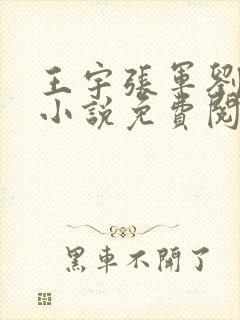 王宇張軍劉
小說免費閱
黑車不開了